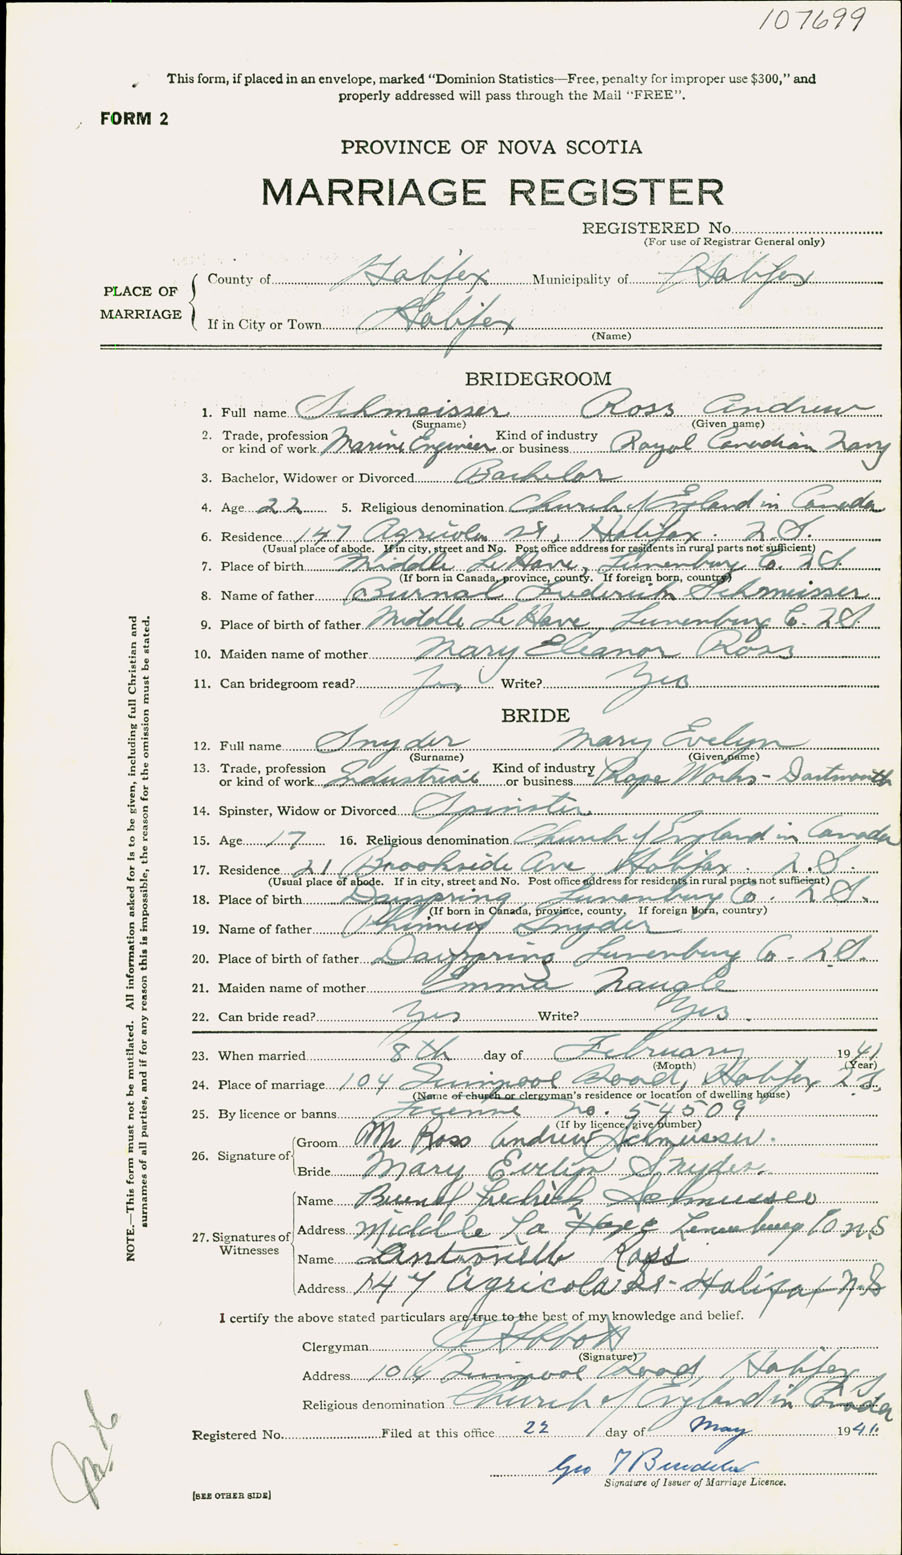 107699
This form, if placed in an envelope, marked "Dominion Statistics—Free, penalty for improper use $300," and
properly addressed will pass through the Mail "FREE".
FORM 2
PROVINCE OF NOVA SCOTIA
MARRIAGE REGISTER
REGISTERED No.
(For use of Registrar General only)
PLACE OF MARRIAGE
County of Halifax Municipality of Halifax
If in City or Town Halifax
(Name)
BRIDEGROOM
1. Full name Schmeisser Ross Andrew
(Surname) (Given name)
2. Trade, profession or kind of work Marine Engineer Kind of industry or business Royal Canadian Navy
3. Bachelor, Widower or Divorced Bachelor
4. Age 22 5. Religious denomination Church of England in Canada
6. Residence 147 Agricola St, Halifax. N.S.
(Usual place of abode. If in city, street and No. Post office address for residents in rural parts not sufficient)
7. Place of birth Middle LeHave, Lunenburg Co. N.S.
(If born in Canada, province, county. If foreign born, country)
8. Name of father Burnal Frederick Schmeisser
9. Place of birth of father Middle LeHave Lunenburg Co. N.S.
10. Maiden name of mother Mary Eleanor Ross
11. Can bridegroom read? Yes Write? Yes
BRIDE
12. Full name Snyder Mary Evelyn
(Surname) (Given name)
13. Trade, profession or kind of work Industrial Kind of industry or business Rope Works - Dartmouth
14. Spinster, Widow or Divorced Spinster
15. Age 17 16. Religious denomination Church of England in Canada
17. Residence 21 Brookside Ave, Halifax. N.S.
(Usual place of abode. If in city, street and No. Post office address for residents in rural parts not sufficient)
18. Place of birth Dayspring Lunenburg Co. N.S.
(If born in Canada, province, county, If foreign born, country)
19. Name of father Snyder
20. Place of birth of father Dayspring Lunenburg Co. N.S.
21. Maiden name of mother Emma Naugle
22. Can bride read? Yes Write? Yes.
23. When married 8th day of February 1941
(Month) (Year)
24. Place of marriage 104 Quinpool Road, Halifax N.S.
(Name of church or clergyman's residence or location of dwelling house)
25. By licence or banns License No. 54509
(If by licence, give number)
26. Signature of
Groom Mr Ross Andrew Schmeisser.
Bride Mary Evelyn Snyder.
27. Signatures of Witnesses
Name Burnal Fredrick Schmeisser
Address Middle La Have Lunenburg Co N.S
Name Ross
Address 147 Agricola St - Halifax N.S
I certify the above stated particulars are true to the best of my knowledge and belief.
Clergyman Abbott
(Signature)
Address 104 Quinpool Road, Halifax
Religious denomination Church of England in Canada
Registered No. Filed at this office 22 day of May 1941.
Geo T
Signature of Issuer of Marriage Licence.
[SEE OTHER SIDE]
NOTE.—This form must not be mutilated. All information asked for is to be given, including full Christian and
surnames of all parties, and if for any reason this is impossible, the reason for the omission must be stated.